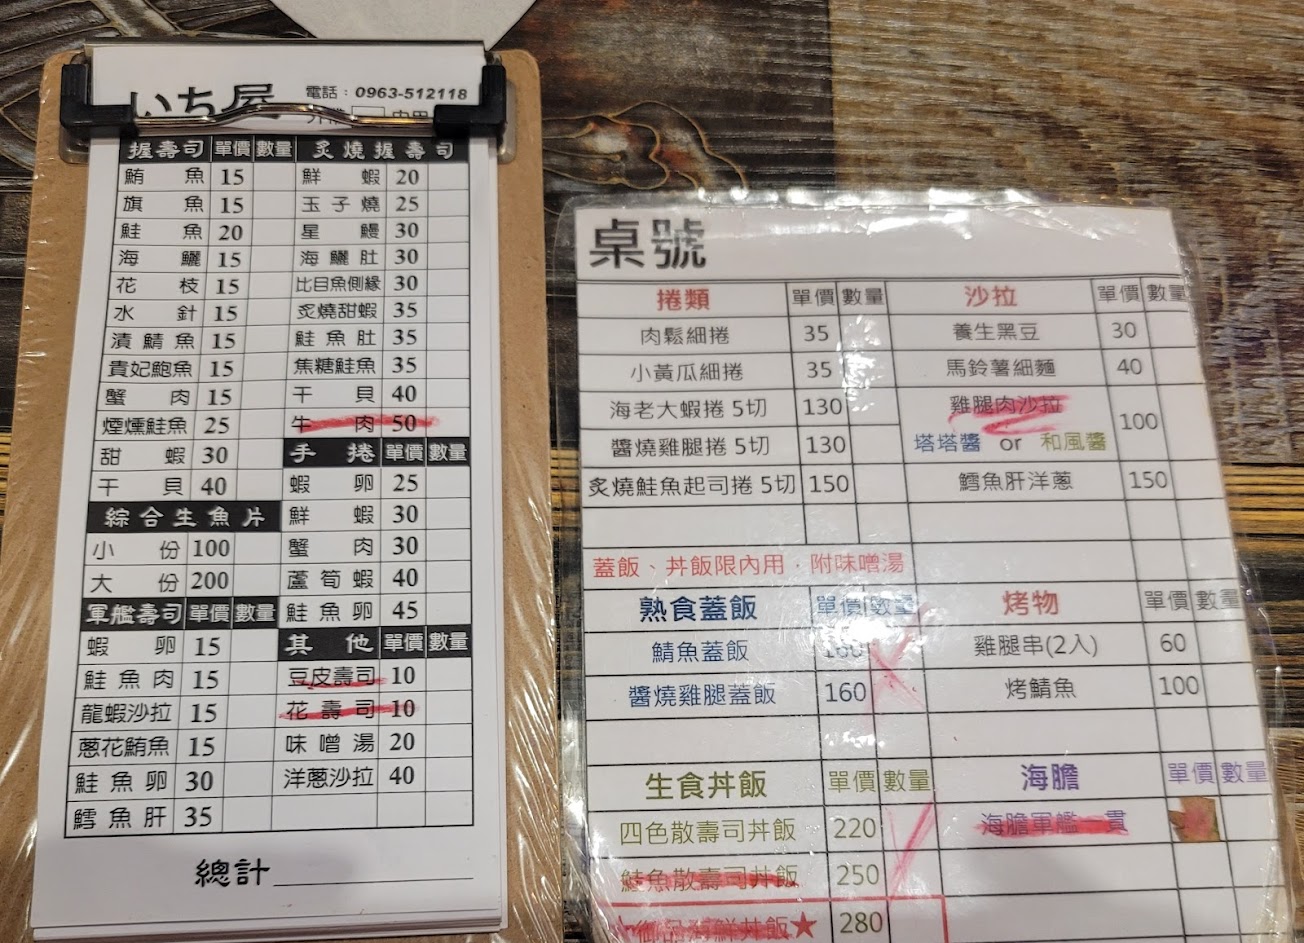 いち屋
電話：0963-512118
握壽司 單價 數量
鮪魚 15
旗魚 15
鮭魚 20
海鱺 15
花枝 15
水針 15
漬鯖魚 15
貴妃鮑魚 15
蟹肉 15
煙燻鮭魚 25
甜蝦 30
干貝 40
綜合生魚片
小份 100
大份 200
軍艦壽司 單價 數量
蝦卵 15
鮭魚肉 15
龍蝦沙拉 15
蔥花鮪魚 15
鮭魚卵 30
鱈魚肝 35
炙燒握壽司
鮮蝦 20
玉子燒 25
星鰻 30
海鱺肚 30
比目魚側緣 30
炙燒甜蝦 35
鮭魚肚 35
焦糖鮭魚 35
干貝 40
牛肉 50
手捲 單價 數量
蝦卵 25
鮮蝦 30
蟹肉 30
蘆筍蝦 40
鮭魚卵 45
其他 單價 數量
豆皮壽司 10
花壽司 10
味噌湯 20
洋蔥沙拉 40
總計
桌號
捲類 單價 數量
肉鬆細捲 35
小黃瓜細捲 35
海老大蝦捲 5切 130
醬燒雞腿捲 5切 130
炙燒鮭魚起司捲 5切 150
蓋飯、丼飯限內用，附味噌湯
熟食蓋飯 單價 數量
鯖魚蓋飯 160
醬燒雞腿蓋飯 160
生食丼飯 單價 數量
四色散壽司丼飯 220
鮭魚散壽司丼飯 250
海鮮丼飯★ 280
沙拉 單價 數量
養生黑豆 30
馬鈴薯細麵 40
雞腿肉沙拉 100
塔塔醬 or 和風醬
鱈魚肝洋蔥 150
烤物 單價 數量
雞腿串(2入) 60
烤鯖魚 100
海膽 單價 數量
海膽軍艦一貫